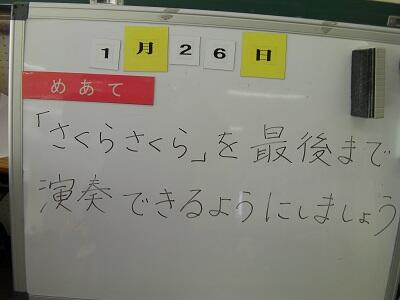 1月26日
めあて
「さくらさくら」を最後まで
演奏できるようにしましょう